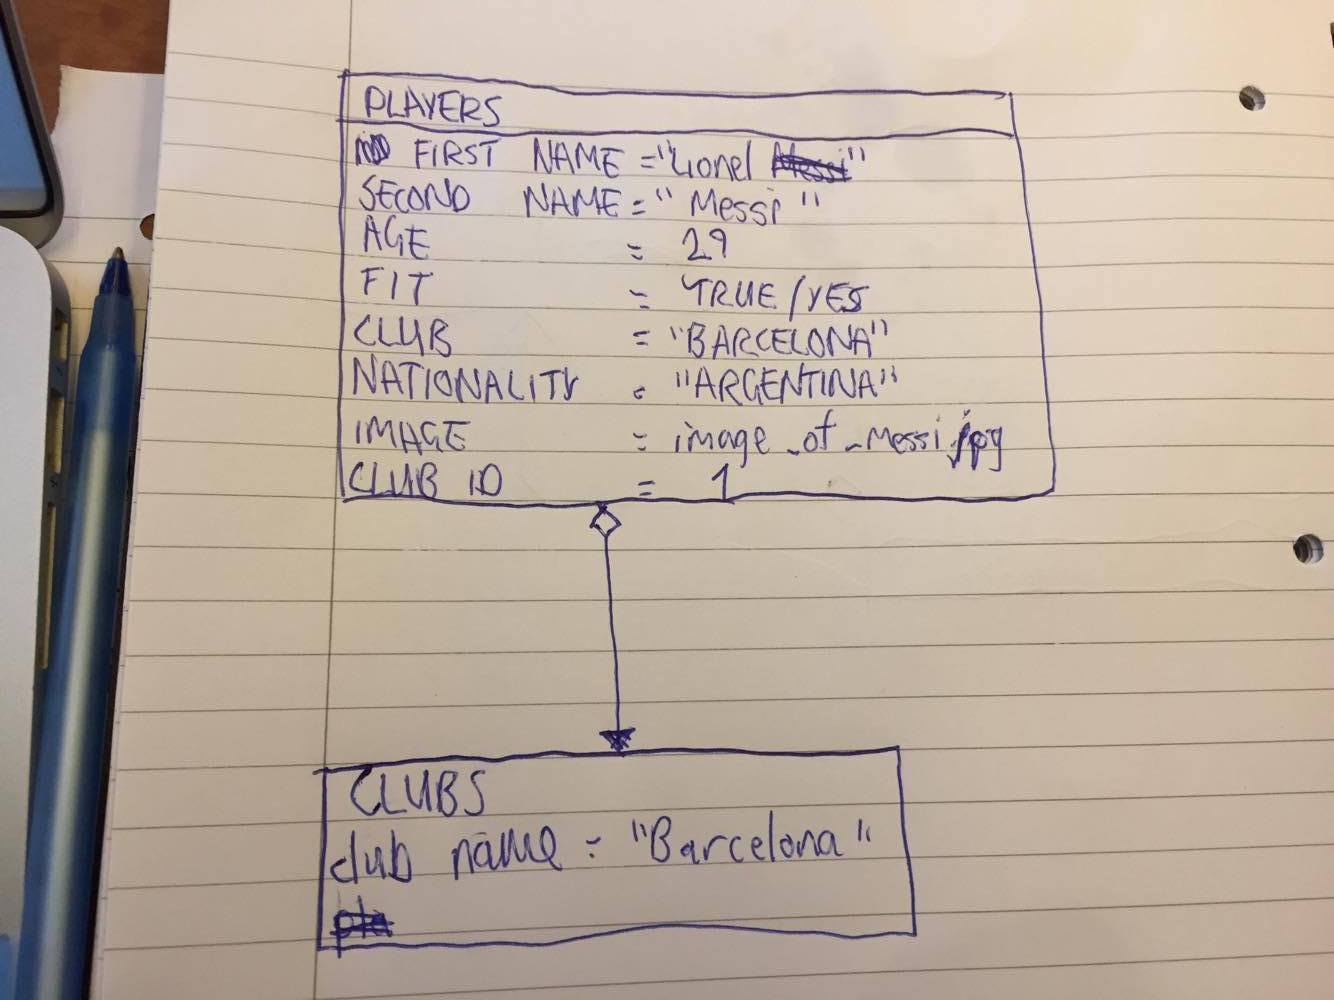 PLAYERS
FIRST NAME = "Lionel Messi"
SECOND NAME = "Messi"
AGE = 29
FIT = TRUE/YES
CLUB = "BARCELONA"
NATIONALITY = "ARGENTINA"
IMAGE = image_of_Messi.jpg
CLUB ID = 1
CLUBS
club name = "Barcelona"
pla